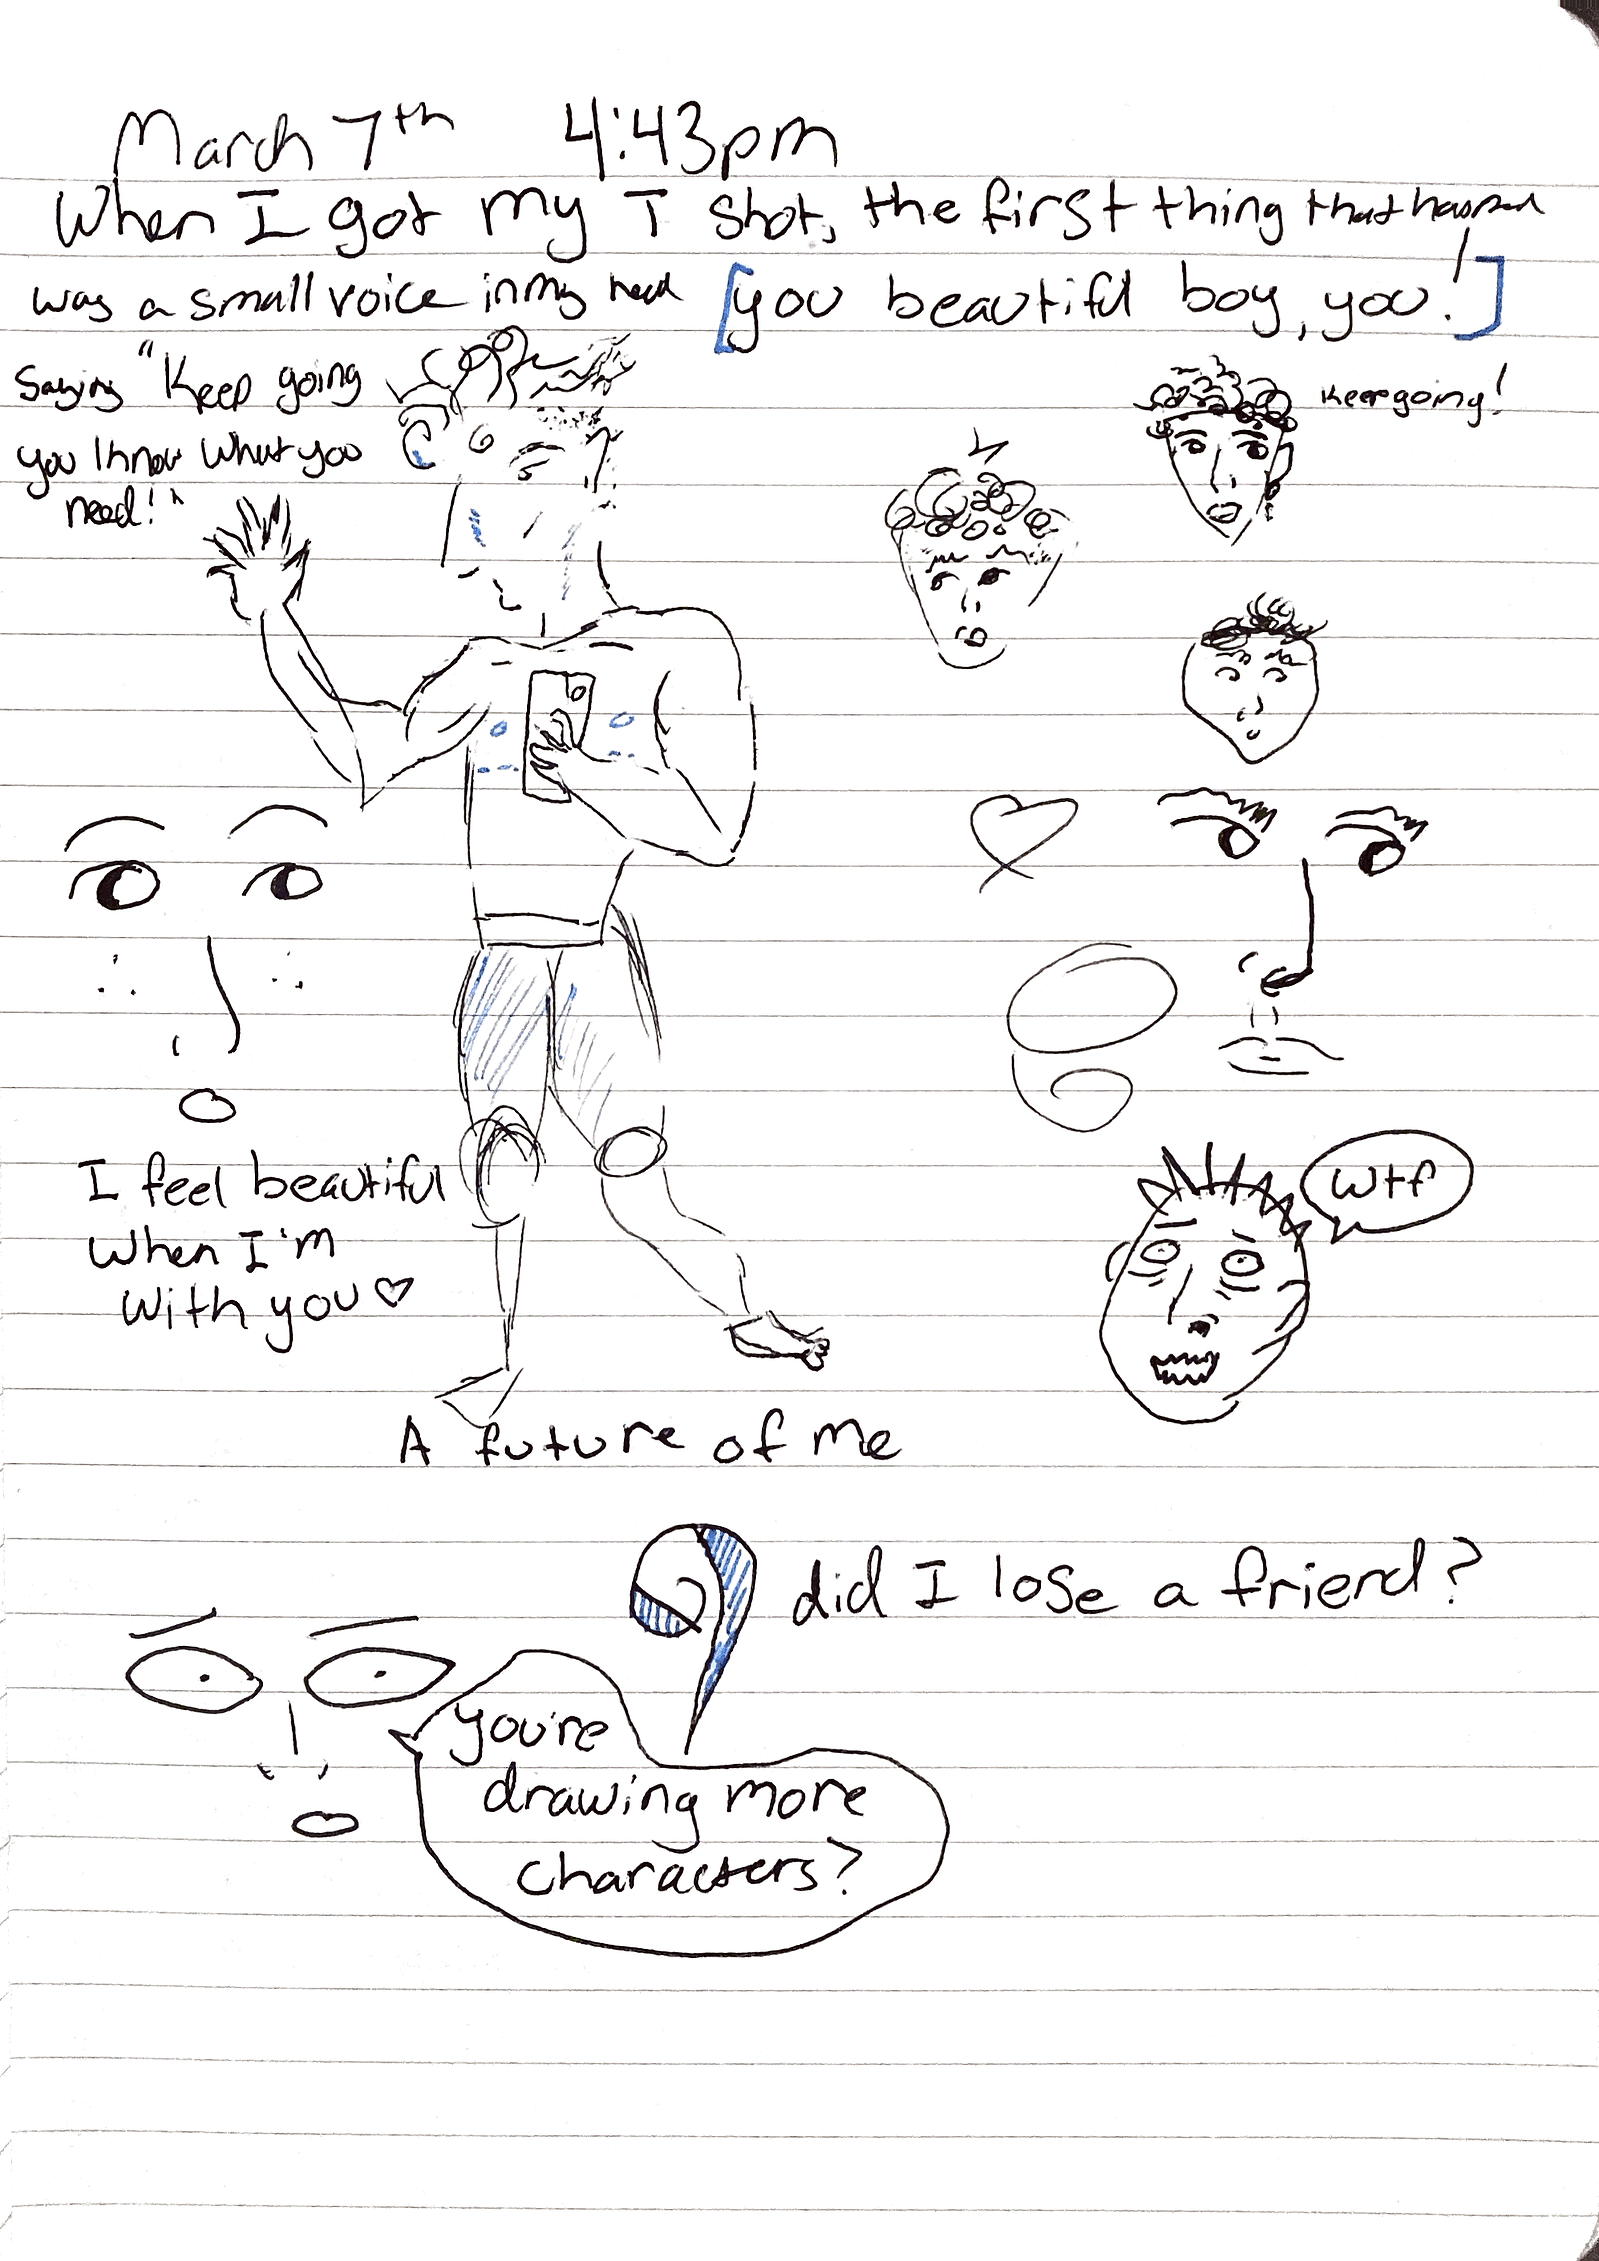 March 7th 4:43pm
When I got my T shot, the first thing that happened
was a small voice in my head [you beautiful boy, you!]
Saying "Keep going
you know what you
need!"
Keep going!
I feel beautiful
when I'm
with you
wtf
A future of me
did I lose a friend?
you're
drawing more
characters?